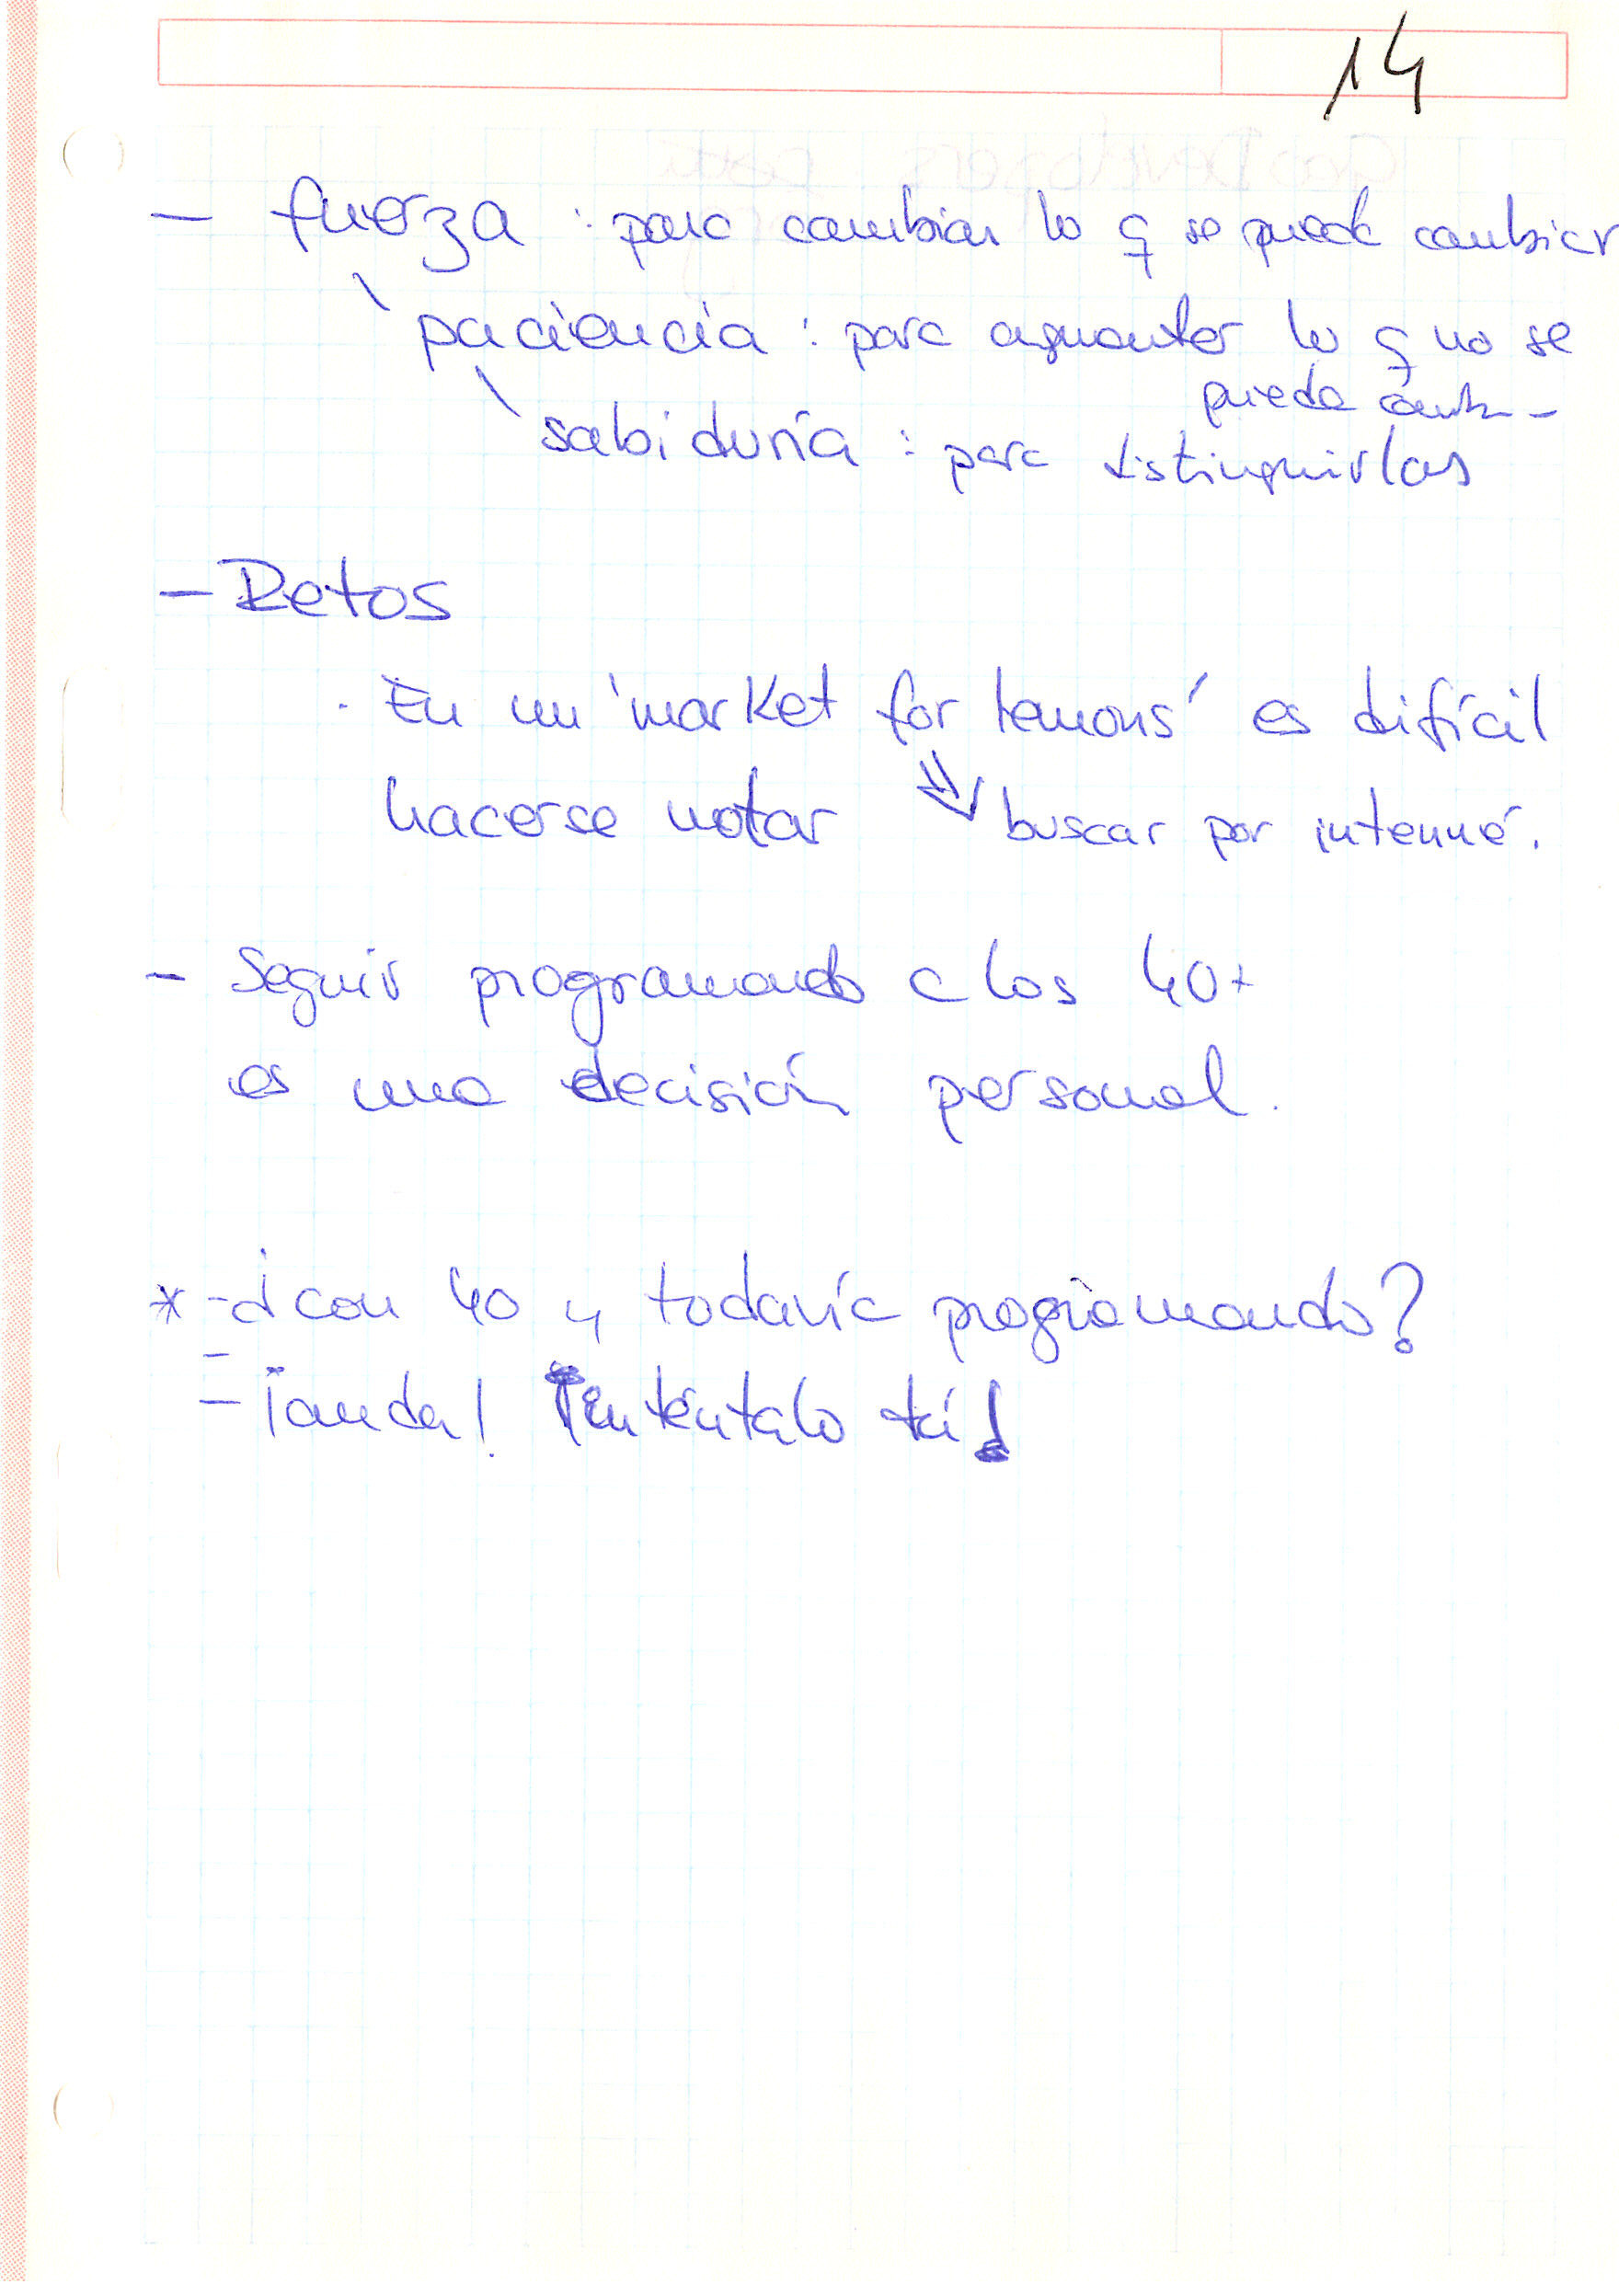 14
- fuerza : para cambiar lo q se puede cambiar
paciencia : para aguantar lo q no se
puede camb -
sabiduría : para distinguirlas
- Retos
· En un 'market for lemons' es difícil
hacerse notar ⇒ buscar por
- Seguir programando a los 40+
es una decisión personal.
* - ¿con 40 y todavía programando?
- ¡anda! ¡inténtalo tú!